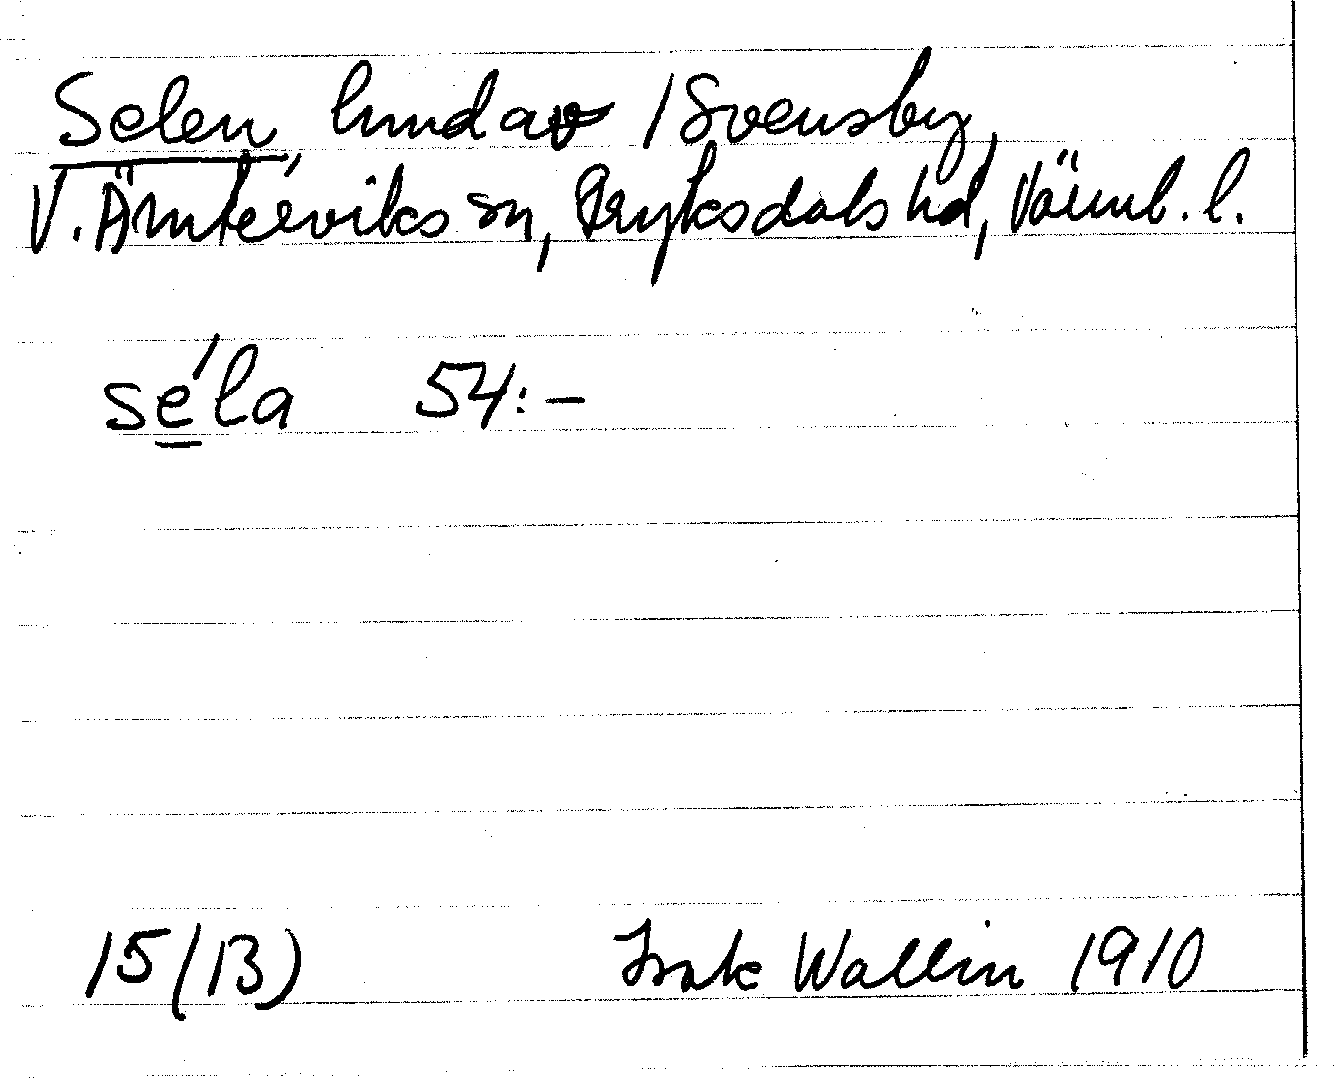 Selen, hmdav 1 Svensby,
V. Ämterviks sn, Fryksdals hd, Värml. l.
séla 54:-
15(13) Isak Wallin 1910